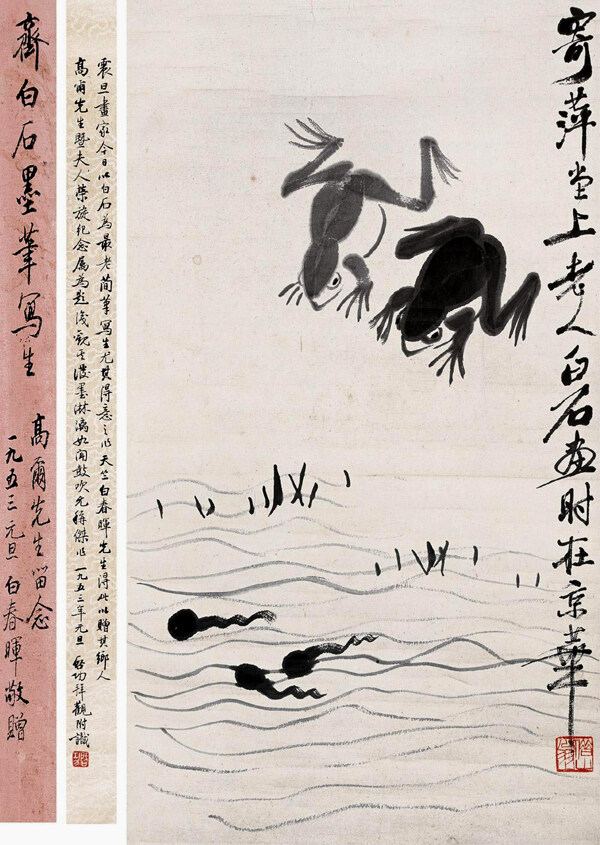 寄萍堂上老人白石画時在京華
震旦畫家今日以白石為最老簡筆寫生尤其得意之作天竺白春暉先生得此以贈其鄉人
高爾先生暨夫人榮旋紀念属為題後觀其潑墨淋漓如聞鼓吹允稱傑作一九五三年元旦啓功拜觀附識
齊白石墨筆寫生
高爾先生留念
一九五三元旦白春暉敬贈